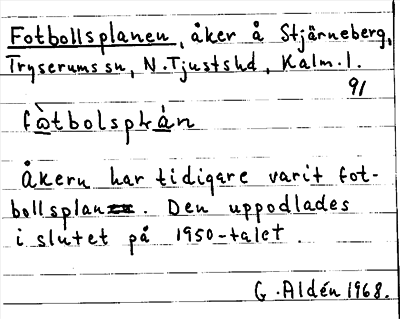 Fotbollsplanen, åker å Stjärneberg,
Tryserums sn, N. Tjusts hd, Kalm. l.
91
fὼtbolsplán
Åkern har tidigare varit fot-
bollsplan. Den uppodlades
i slutet på 1950-talet.
G. Aldén 1968.